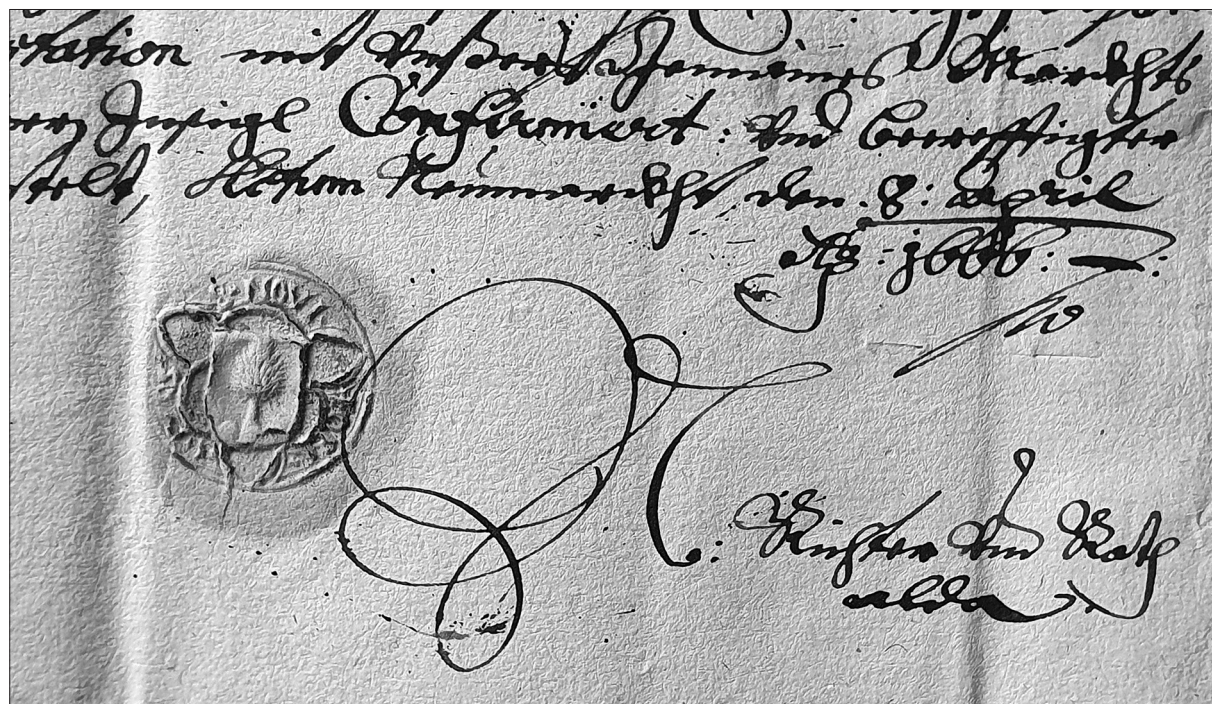 tation mit Unsers gemaines Marckhts
ern Insigl Confirmiert: und becrefftigter
stelt, Actum Neumarckht den. 8: April
Aõ: 1666:
NOVI
: Richter und Rath
alda